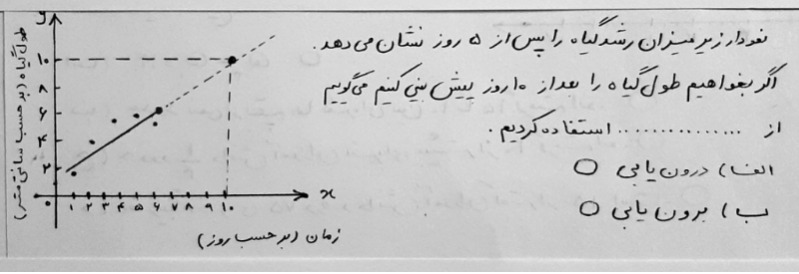 نمودار زیر میزان رشد گیاه را پس از ۵ روز نشان می‌دهد.
اگر بخواهیم طول گیاه را بعد از ۱۰ روز پیش بینی کنیم می‌گوییم
از ............... استفاده کردیم.
الف) درون یابی
ب) برون یابی
y
طول گیاه (بر حسب سانتی متر)
۱۰
۸
۶
۴
۲
۰
۱ ۲ ۳ ۴ ۵ ۶ ۷ ۸ ۹ ۱۰
x
زمان (بر حسب روز)